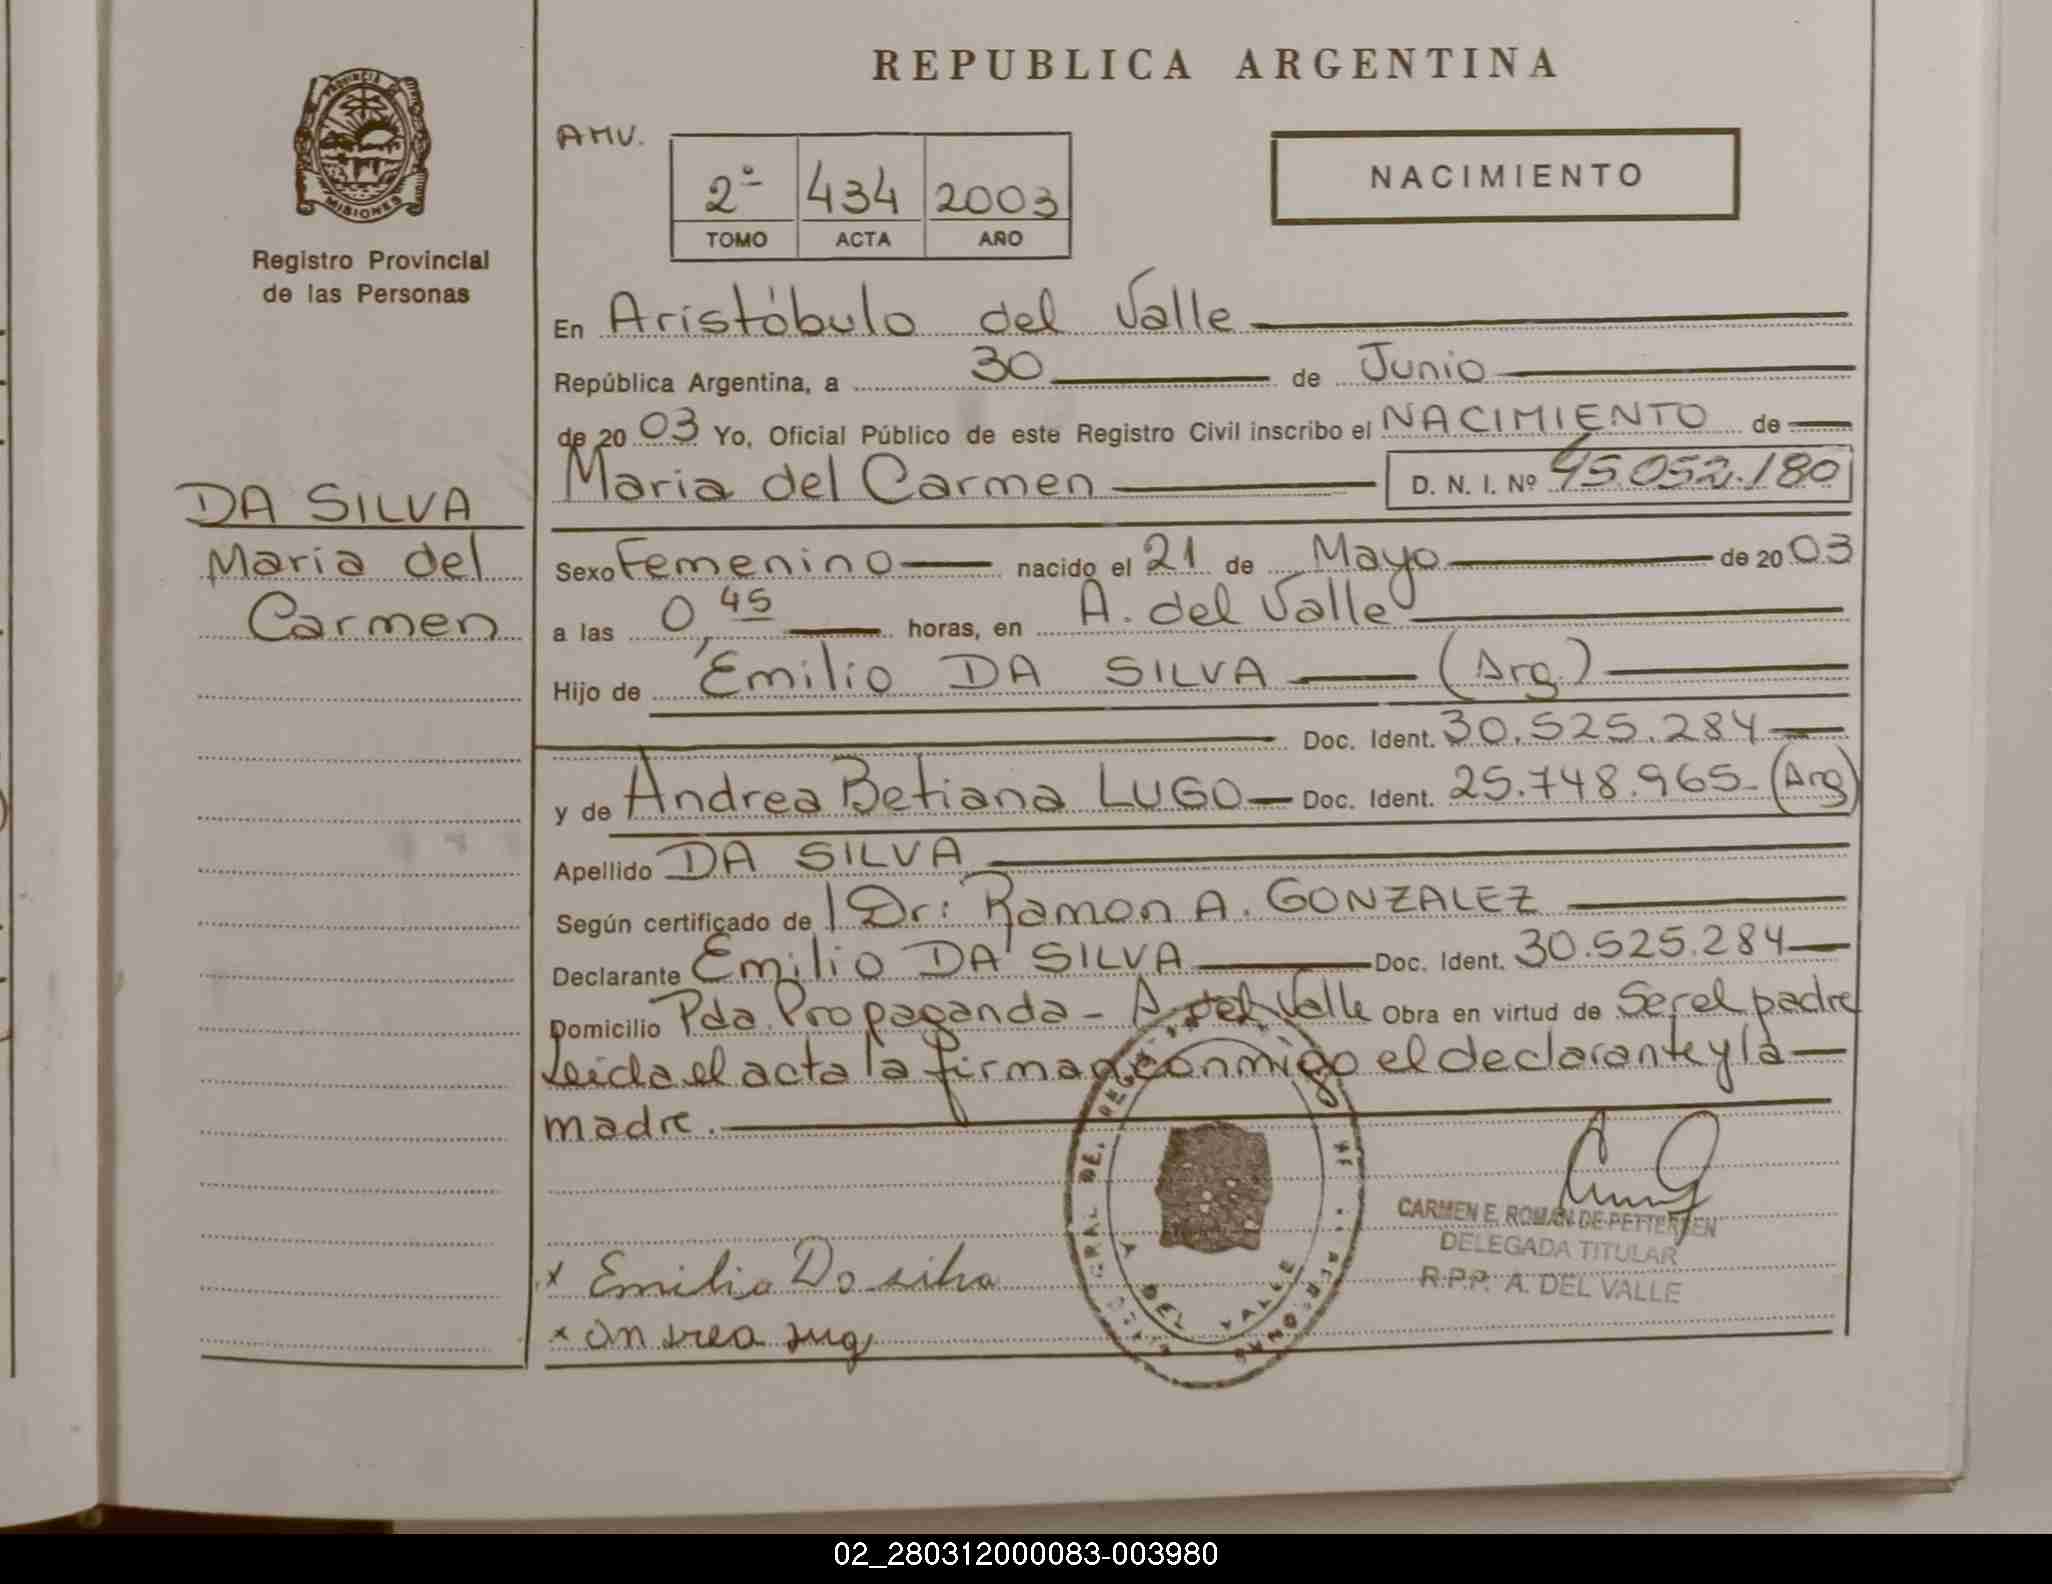 REPUBLICA ARGENTINA
PROVINCIA DE
MISIONES
Registro Provincial
de las Personas
AMV.
2º 434 2003
TOMO ACTA AÑO
NACIMIENTO
En Aristóbulo del Valle
República Argentina, a 30 de Junio
de 20 03 Yo, Oficial Público de este Registro Civil inscribo el NACIMIENTO de
Maria del Carmen D. N. I. Nº 45.052.180
DA SILVA
Maria del
Carmen
Sexo Femenino nacido el 21 de Mayo de 20 03
a las 0,45 horas, en A. del Valle
Hijo de Emilio DA SILVA (Arg.)
Doc. Ident. 30.525.284
y de Andrea Betiana LUGO Doc. Ident. 25.748.965- (Arg)
Apellido DA SILVA
Según certificado de Dr: Ramon A. GONZALEZ
Declarante Emilio DA SILVA Doc. Ident. 30.525.284
Domicilio Pda. Propaganda - A. del Valle Obra en virtud de Ser el padre
Leida el acta la firman conmigo el declarante y la
madre.
CARMEN E. ROMAN DE PETTERSEN
DELEGADA TITULAR
R.P.P. A. DEL VALLE
A DEL VALLE
x Emilio Da silva
x andrea lug
02_280312000083-003980